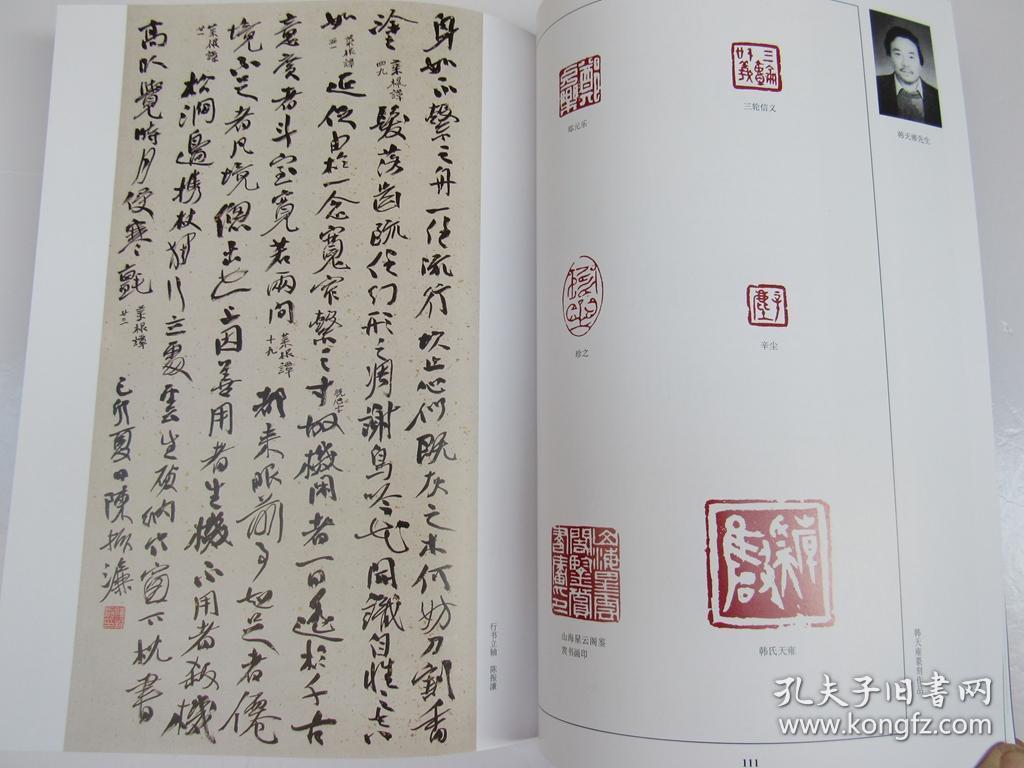 身如不繫之舟一任流行坎止心似既灰之木何妨刀割香
塗菜根譚四九髮落齒疏任幻形之凋謝鳥吟花開識自性之真
如菜根譚延促由於一念寬窄繫之寸故機閑者一日遥於千古
意廣者斗室寬若兩間菜根譚十九都来眼前事知足者僊
境不足者凡境總出世上因善用者生機不用者殺機
菜根譚松澗邊携杖獨行立處雲生破衲竹窗下枕書
高臥覺時月侵寒氈菜根譚廿三己卯夏日陳振濂
行书立轴 陈振濂
郑元乐
三轮信义
珍之
辛尘
山海星云阁鉴
赏书画印
韩氏天雍
韩天雍先生
韩天雍篆刻作品
111
孔夫子旧书网
www.kongfz.com